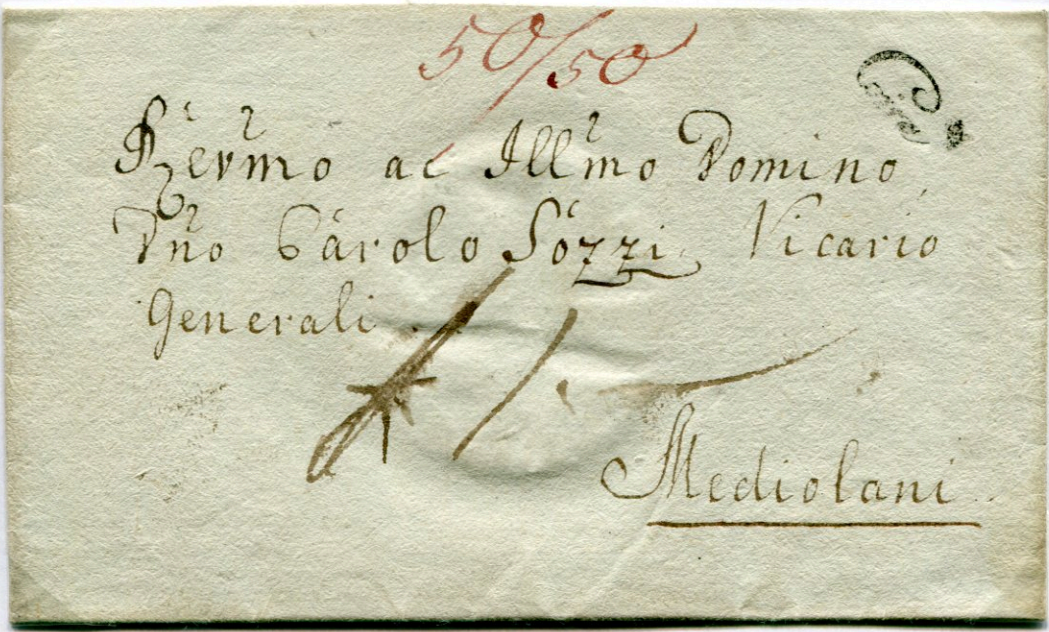 50/50
Coire
Rev̄mo ac Ill̄mo Domino,
Dn̄o Cárolo Sozzi Vicario
Generali
Mediolani